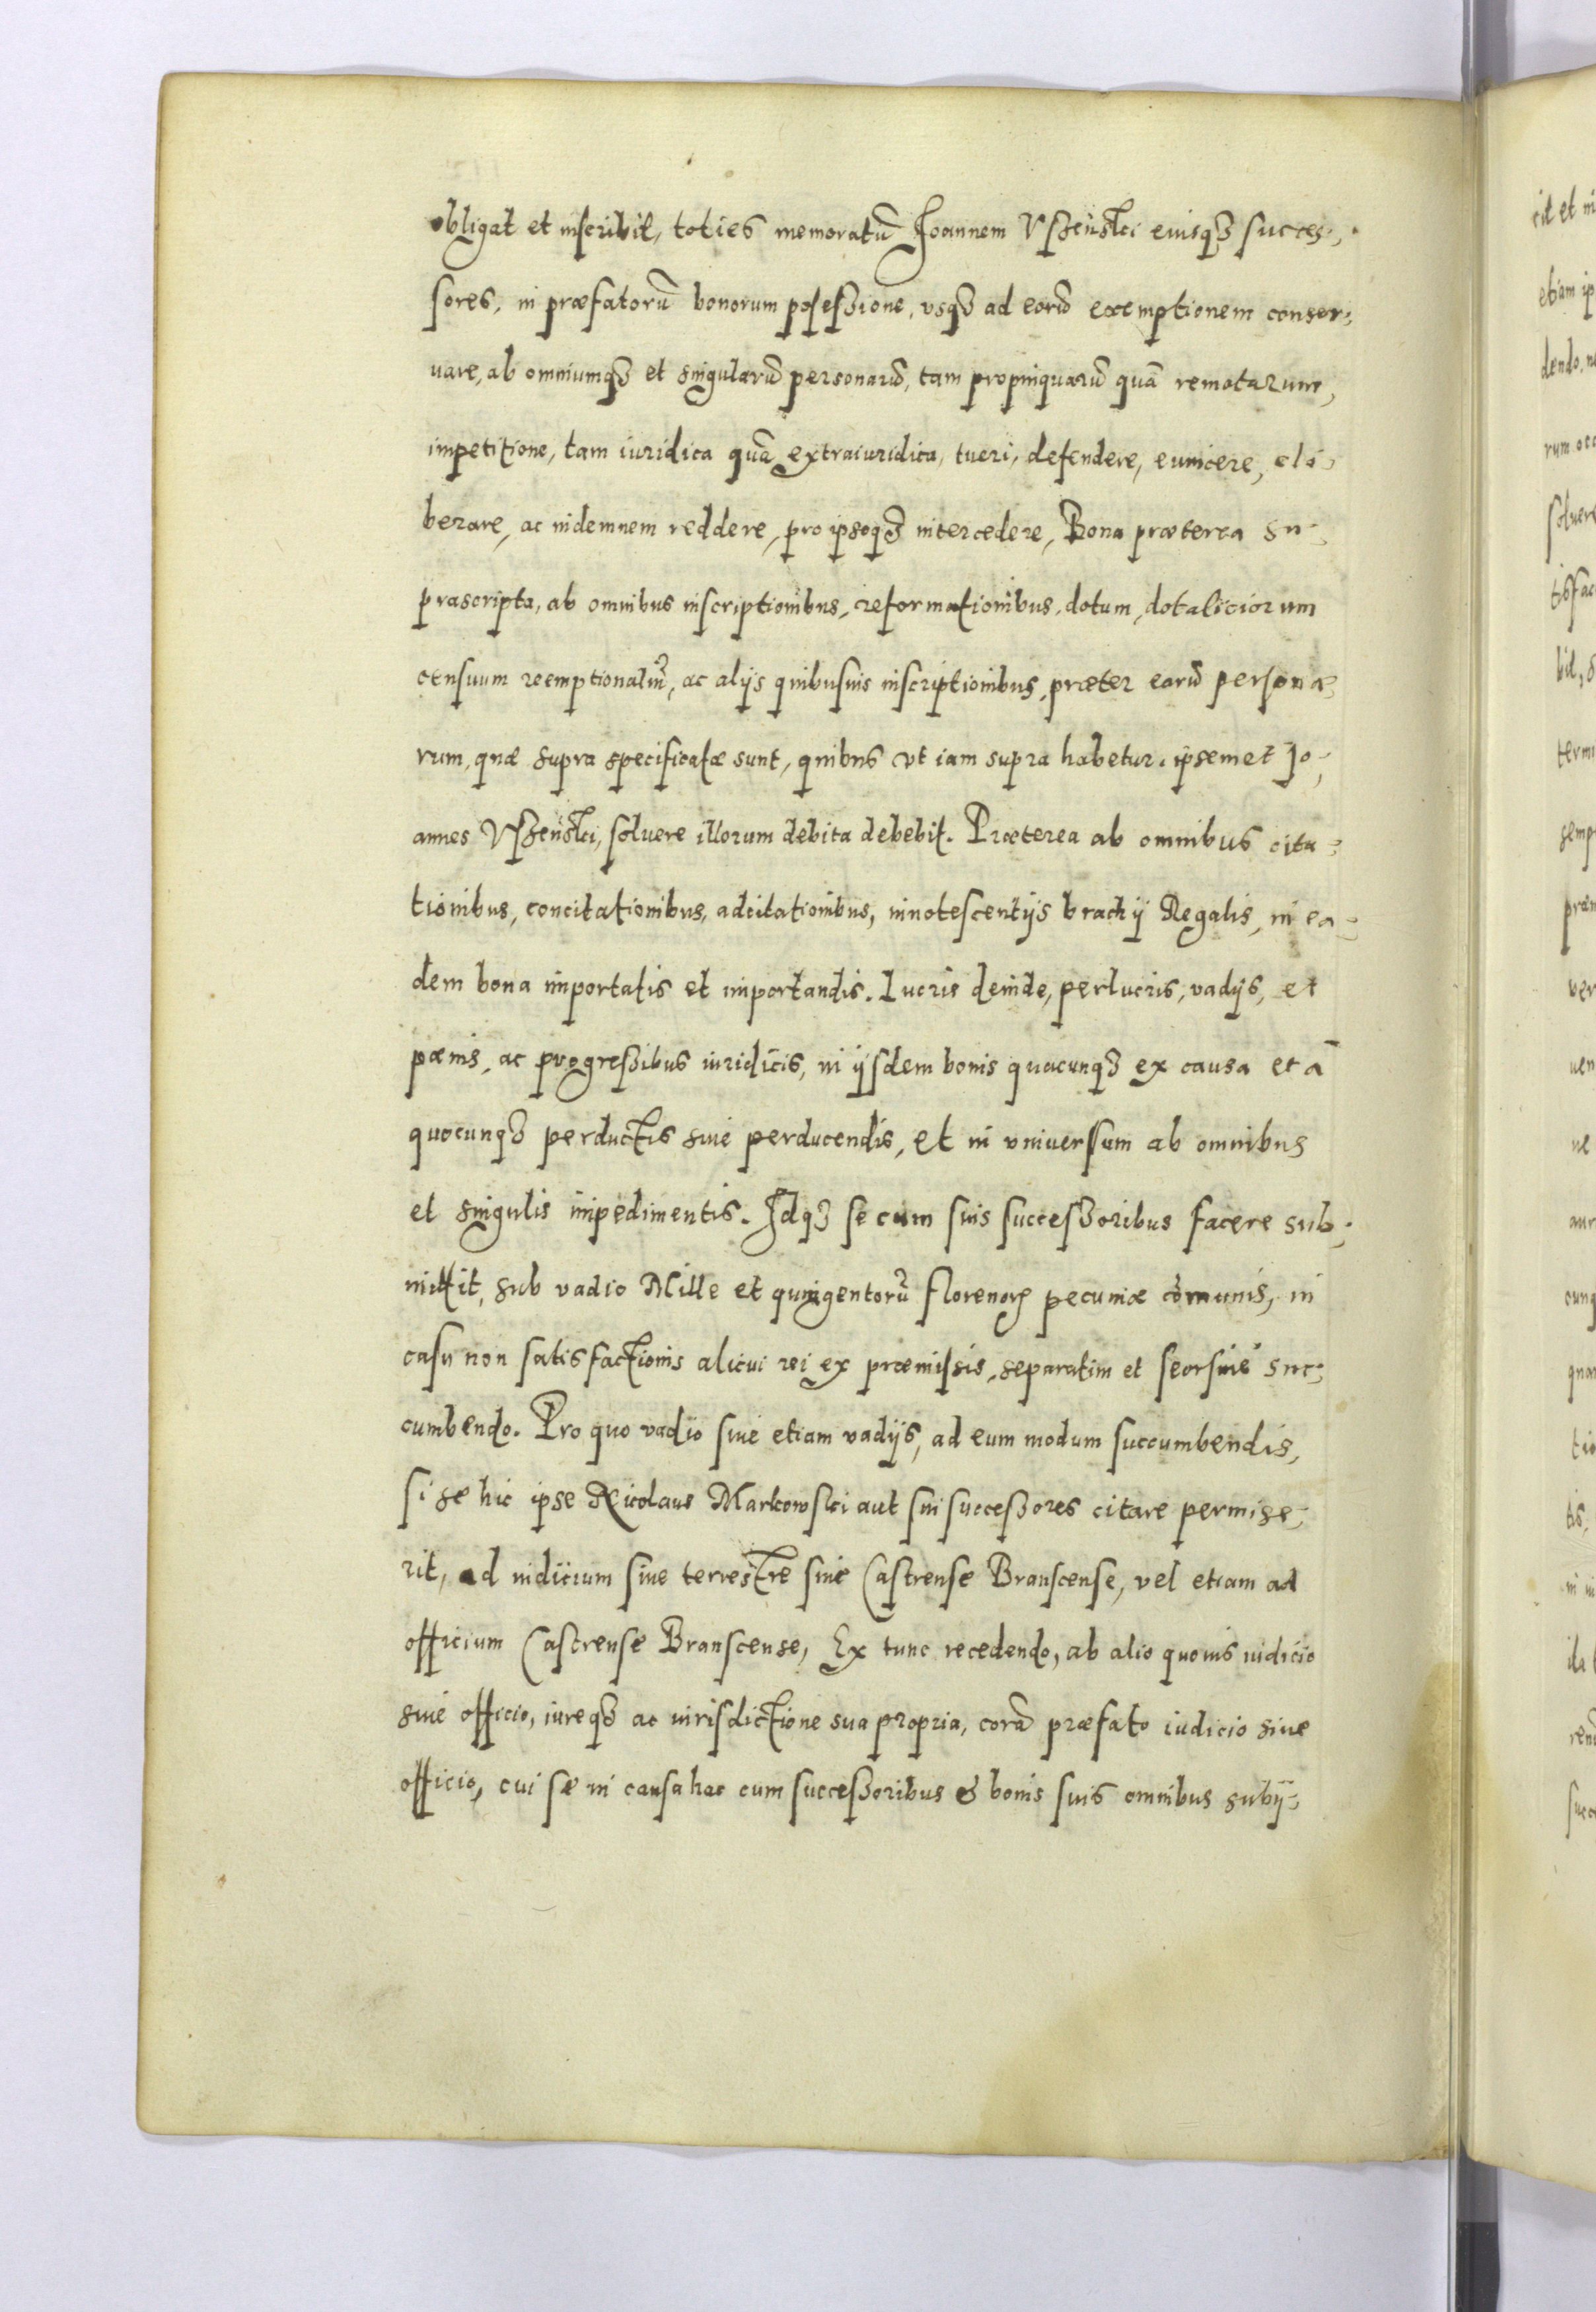 obligat et inscribit, toties memoratū Joannem Vszeński eiusqꝫ succes-
sores, in præfatorū bonorum possessione, vsqꝫ ad eorū exemptionem conser-
uare, ab omniumqꝫ et singularū personarū, tam propinquarū quā remotarum,
impetitione, tam iuridica quā extraiuridica, tueri, defendere, euincere, eli-
berare, ac indemnem reddere, pro ipsoqꝫ intercedere, Bona præterea su-
prascripta, ab omnibus inscriptionibus, reformationibus, dotum, dotaliciorum
censuum reemptionaliū, ac alijs quibusuis inscriptionibus, præter earū persona-
rum, quæ supra specificatæ sunt, quibus vt iam supra habetur, ipsemet Jo-
annes Vszeński, soluere illorum debita debebit. Præterea ab omnibus cita-
tionibus, concitationibus, adcitationibus, innotescentijs brachij Regalis, in ea-
dem bona importatis et importandis. Lucris deinde, perlucris, vadijs, et
pœnis, ac progreßibus iuridicis, in ijsdem bonis quacunqꝫ ex causa et ā
quocunqꝫ perductis siue perducendis, et in vniuersum ab omnibus
et singulis impedimentis. Idqꝫ se cum suis succeßoribus facere sub-
mittit, sub vadio Mille et quingentorū florenorꝫ pecuniæ cōmunis, in
casu non satisfactionis alicui rei ex præmissis, separatim et seorsiuè suc-
cumbendo. Pro quo vadio siue etiam vadijs, ad eum modum succumbendis,
si se hic ipse Nicolaus Markowski aut sui succeßores citare permise-
rit, ad iudicium siue terrestre siue Castrense Branscense, vel etiam ad
officium Castrense Branscense, Ex tunc recedendo, ab alio quouis iudicio
siue officio, iureqꝫ ac iurisdictione sua propria, corā præfato iudicio siue
officio, cui se in causa hac cum succeßoribus & bonis suis omnibus subij-